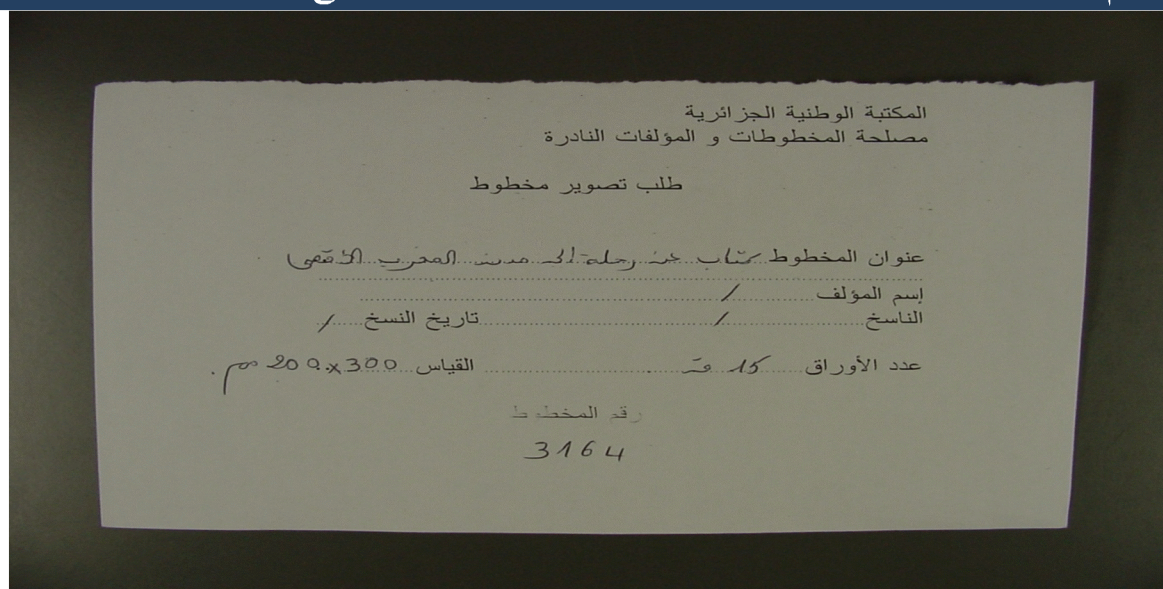 المكتبة الوطنية الجزائرية
مصلحة المخطوطات و المؤلفات النادرة
طلب تصوير مخطوط
عنوان المخطوط كتاب عن رحلة إلى مدينة المغرب الأقصى
إسم المؤلف /
الناسخ / تاريخ النسخ /
عدد الأوراق 15 ق القياس 300x200 مم.
رقم المخطوط
3164